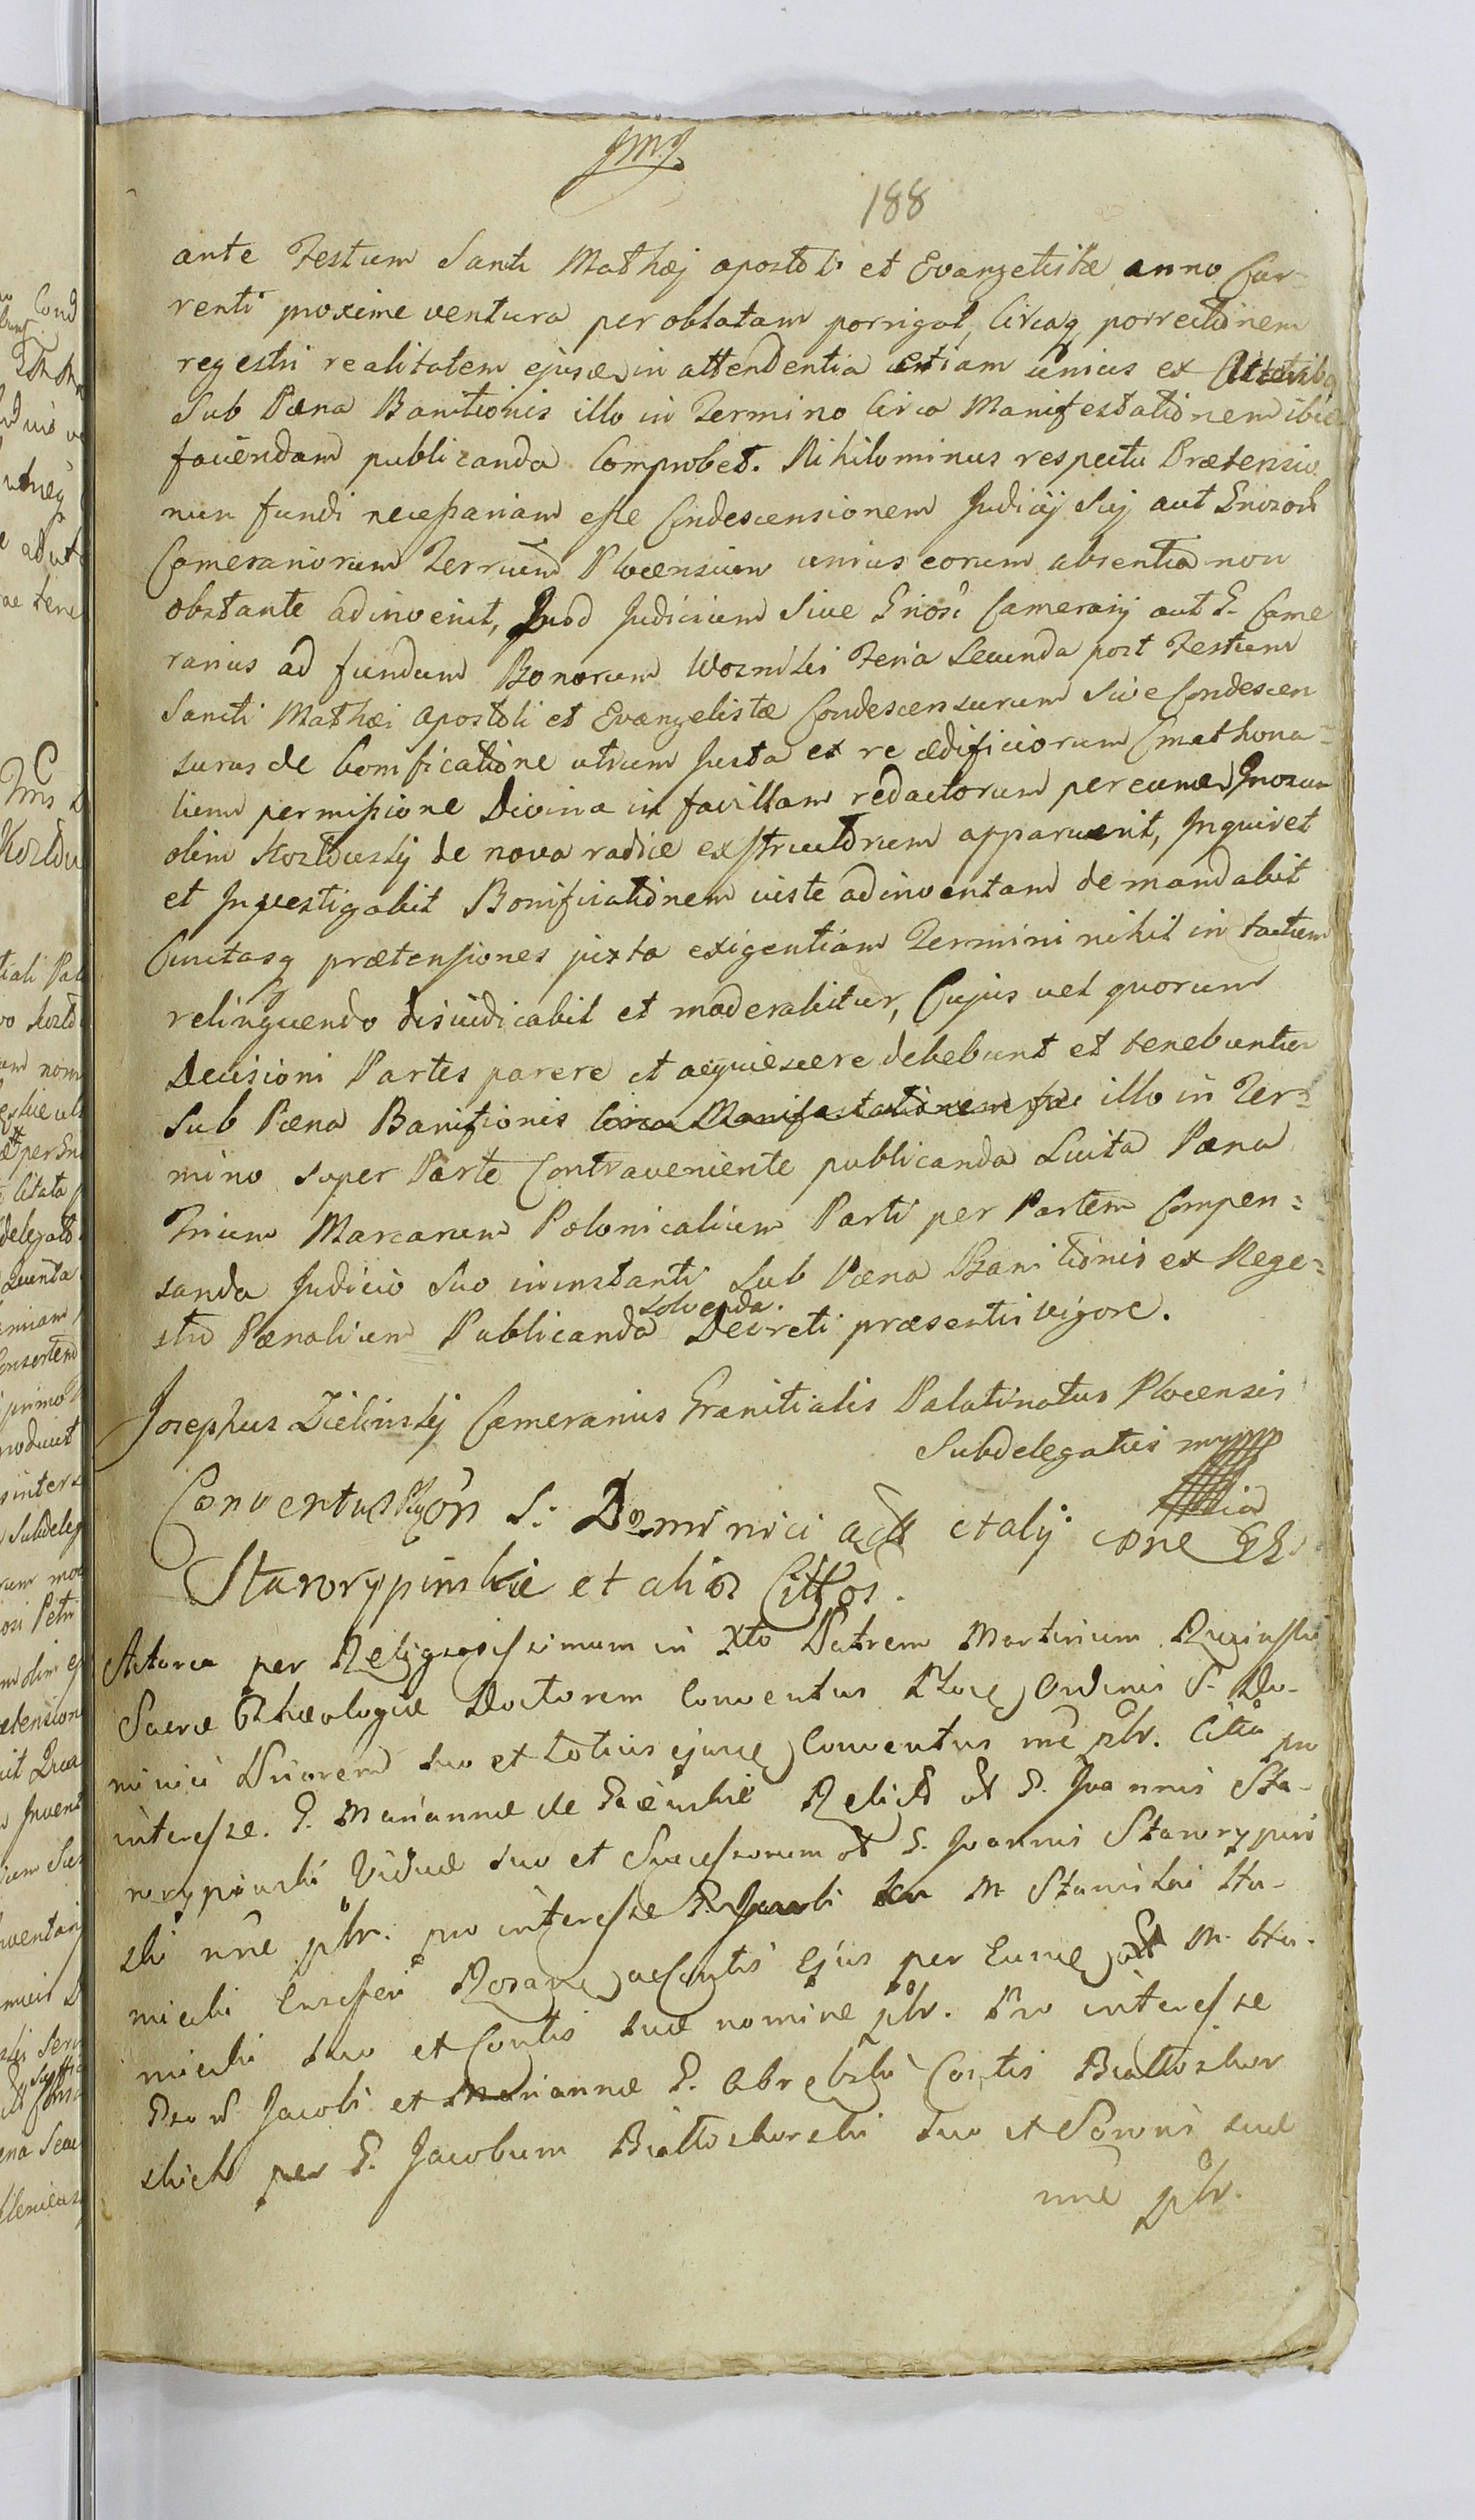 JMJ
188
ante Festum Santi Mathæj apostoli et Evangelistæ anno Cur-
renti proxime ventura per oblatam porrigat, Circaq porrectionem
regestri realitatem ejusd in attendentia etiam unius ex
Sub Pæna Banitionis illo in Termino Circa Manifestationem ibid
faciendam publicanda Comprobet. Nihilominus respectu Prætensio
num fundi necessariam esse Condescensionem Judicij Sui aut Gnosor
Camerariorum Terrium Plocensium unius eorum absentia non
obstante adinvenit, Quod Judicium Sive Gnosi Camerarij aut G. Came
rarius ad fundum Bonorum Wozniki Feria Secunda post Festum
Sancti Mathæi Apostoli et Evangelistæ Condescensurum Sive Condescen
surus de bonificatione utrum Justa ex re ædificiorum Cmethona-
lium permissione Divina in favillam redactorum per eund Gnosum
olim Kozłowskij de nova radice exstructorum apparuerit, Inquiret
et Investigabit Bonificationem iuste adinventam demandabit
Cunctasq prætensiones juxta exigentiam Termini nihil in tactum
relinquendo disiudicabit et moderabitur, Cujus vel quorum
Decisioni Partes parere et acquiescere debebunt et tenebuntur
Sub Pæna Banitionis Circa Manifestationem illo in Ter=
mino super Parte Contraveniente publicanda Luita Pæna
Trium Marcarum Polonicalium Parti per Partem Compen=
sanda Judicio Suo in instanti Sub Pæna Banitionis ex Rege=
solvenda.
stro Pænalium Publicanda Decreti præsentis vigore.
Josephus Zielinskij Camerarius Granitialis Palatinatus Plocensis
Subdelegatus
Conventus S: Dominici et alij cone GG
Starorypinskie et alios Cittos.
Actorea per Religiosissimum in Xto Patrem Martinum
Sacræ Theologiæ Doctorem Conventus Ploc Ordinis S. Do-
minici Priorem suo et totius ejusd Conventus nne plr. Citta pro
interesse. G. Mariannæ de Relictæ ol G. Joannis Sta-
rorypinski Viduæ suo et Successorum ol G. Joannis Starorypin
ski nne plr. pro interesse G. M. Stanislai Hu-
mięcki Ensiferi Rozan ac Contis Ejus per Eund M. Hu-
mięcki suo et Contis suæ nomine plr. Pro interesse
Jacobi et Mariannæ G. Contis Białłoskor
skich per G. Jacobum Białłoskorski suo et suæ
nne plr.